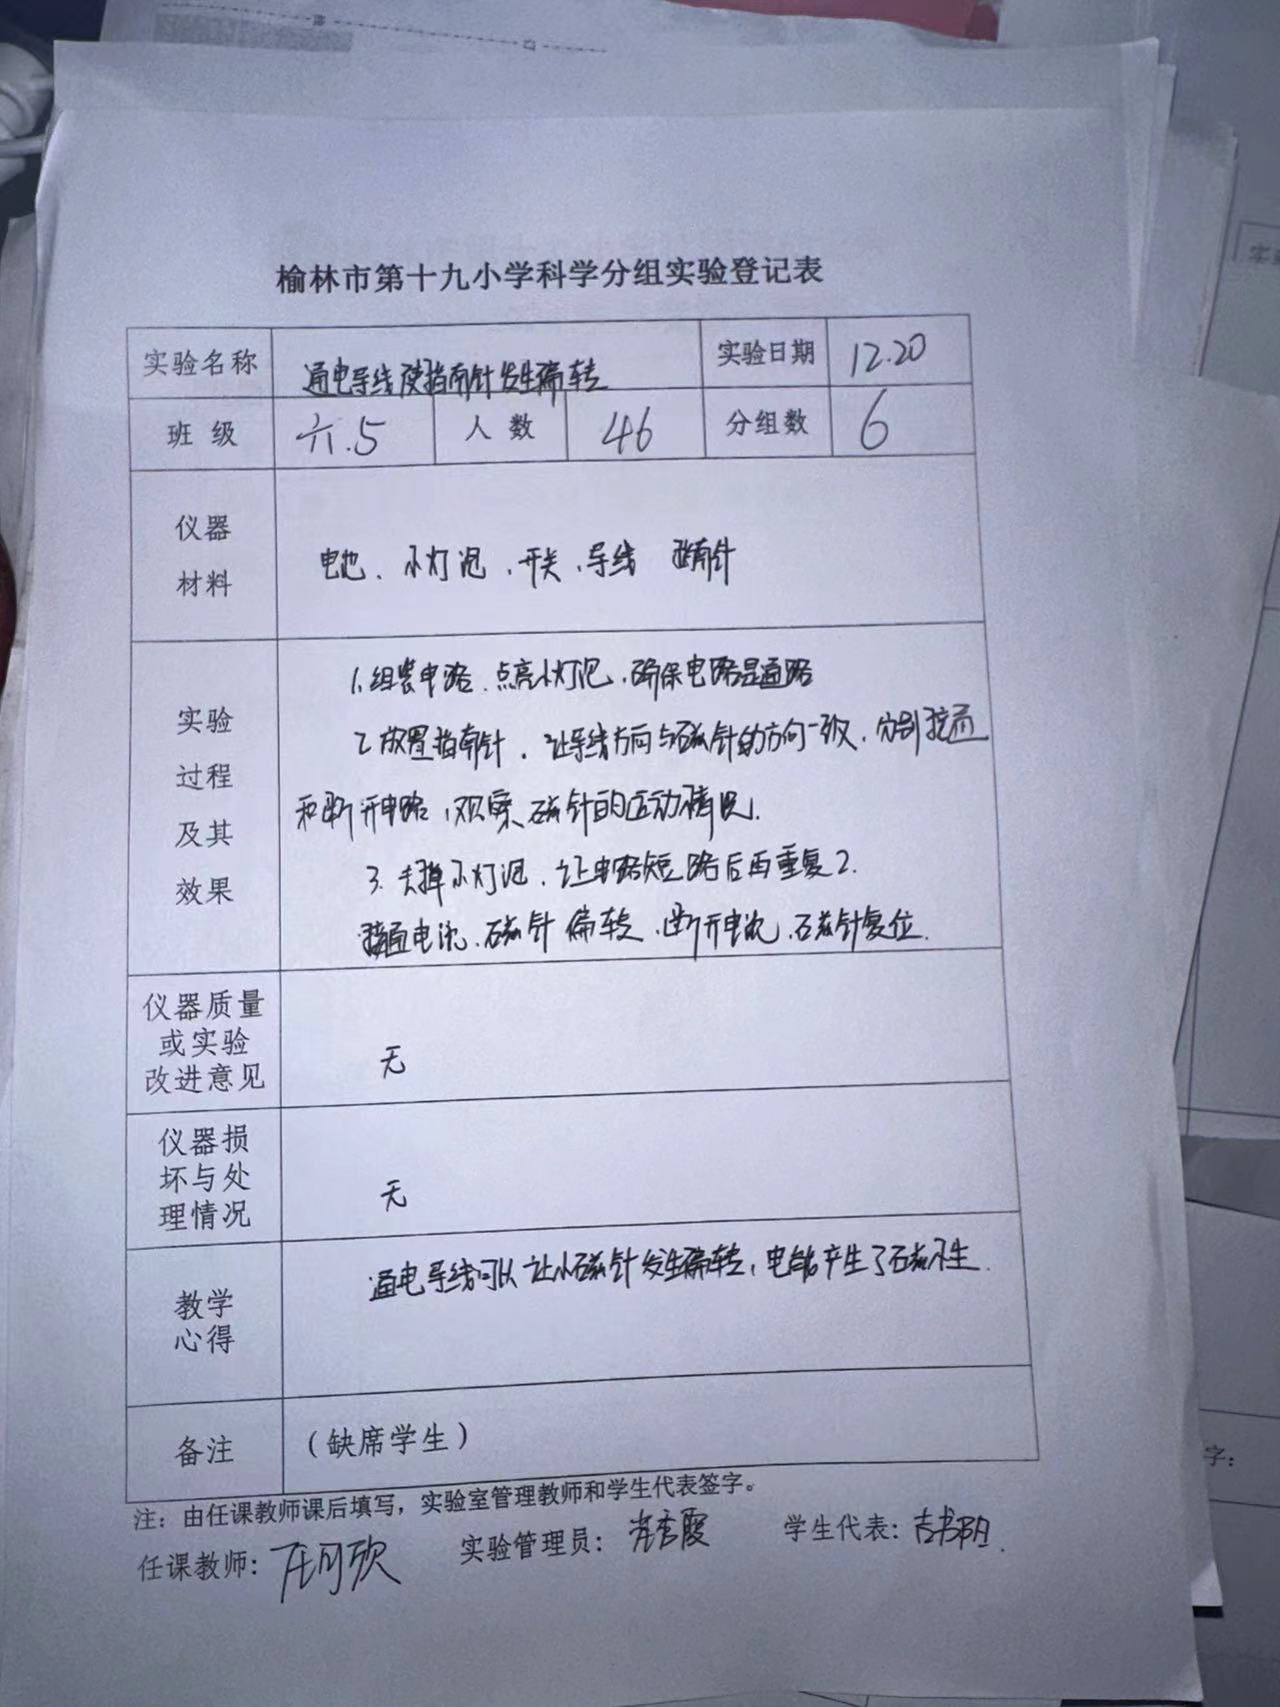 榆林市第十九小学科学分组实验登记表
实验名称 通电导线使指南针发生偏转 实验日期 12.20
班级 六.5 人数 46 分组数 6
仪器
材料
电池、小灯泡、开关、导线 指南针
实验
过程
及其
效果
1.组装电路、点亮小灯泡,确保电路是通路
2.放置指南针,让导线方向与磁针的方向一致,分别接通
和断开电路,观察磁针的运动情况.
3.去掉小灯泡,让电路短路后再重复2.
接通电流、磁针偏转,断开电流,磁针复位.
仪器质量
或实验
改进意见
无
仪器损
坏与处
理情况
无
教学
心得
通电导线可以让小磁针发生偏转,电能产生了磁
备注
(缺席学生)
注:由任课教师课后填写,实验室管理教师和学生代表签字。
任课教师: 实验管理员: 学生代表:
字: